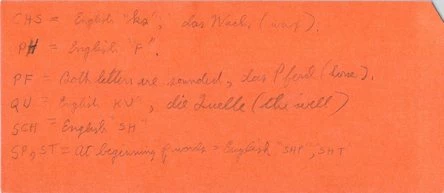 CHS = English "ks", das Wachs (wax).
PH = English "F".
PF = Both letters are sounded, das Pferd (horse).
QU = English KV", die Quelle (the well)
SCH = English "SH"
SP, ST = At beginning of words = English "SHP", SHT